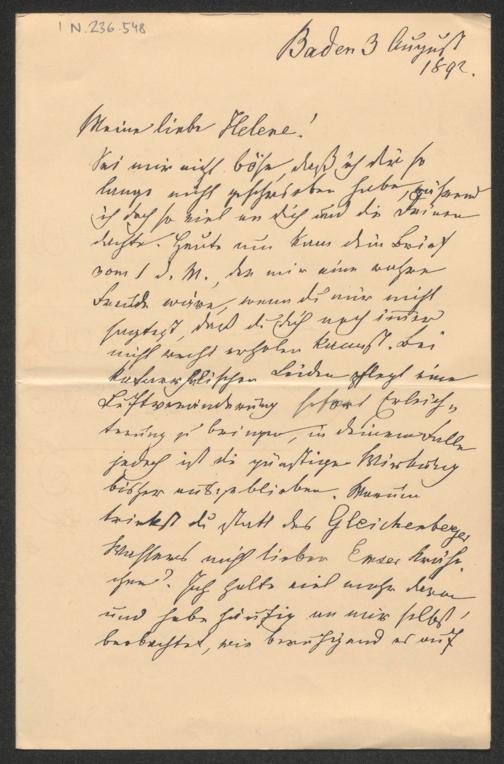 I N. 236.548
Baden 3 August
1892.
Meine liebe Helene!
Sei mir nicht böse, daß ich dir so
lange nicht geschrieben habe, während
ich doch so viel an dich und die Deinen
dachte. Heute nun kam dein Brief
vom 1 d. M., der mir eine wahre
Freude wäre, wenn du mir nicht
sagtest, daß du dich noch immer
nicht recht erholen kannst. Bei
katarrhalischen Leiden pflegt eine
Luftveränderung sofort Erleich„
terung zu bringen, in deinem Falle
jedoch ist die günstige Wirkung
bisher ausgeblieben. Warum
trinkst du statt des Gleichenberger
Wassers nicht lieber Emser Kräh„
chen? Ich halte viel mehr davon
und habe häufig an mir selbst
beobachtet, wie beruhigend es auf